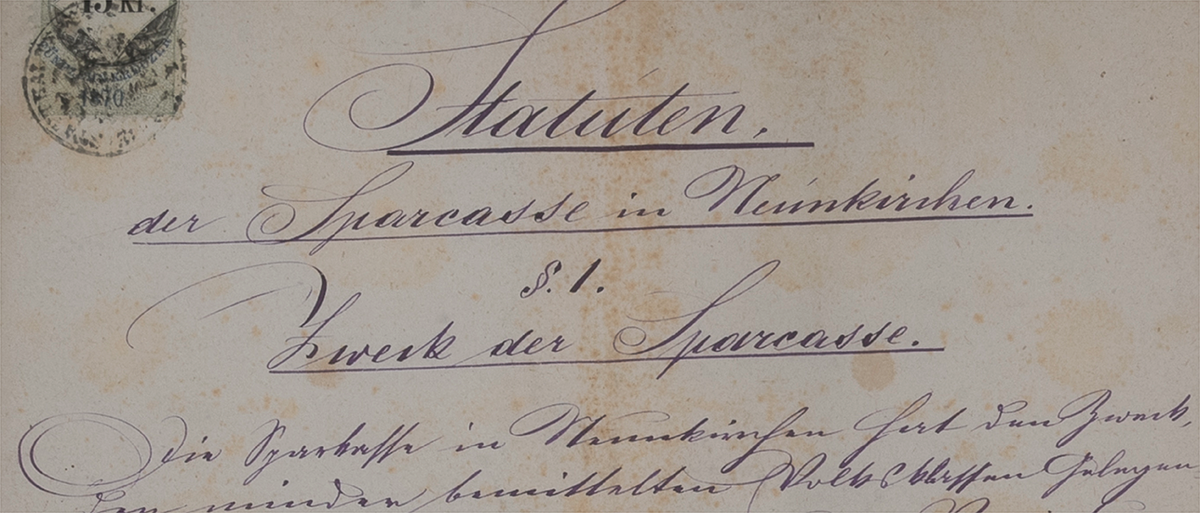 15 Kr.
1870
Statuten.
der Sparcasse in Neunkirchen.
§. 1.
Zweck der Sparcasse.
Die Sparkasse in Neunkirchen hat den Zweck,
den minder bemittelten Volksklassen Gelegen